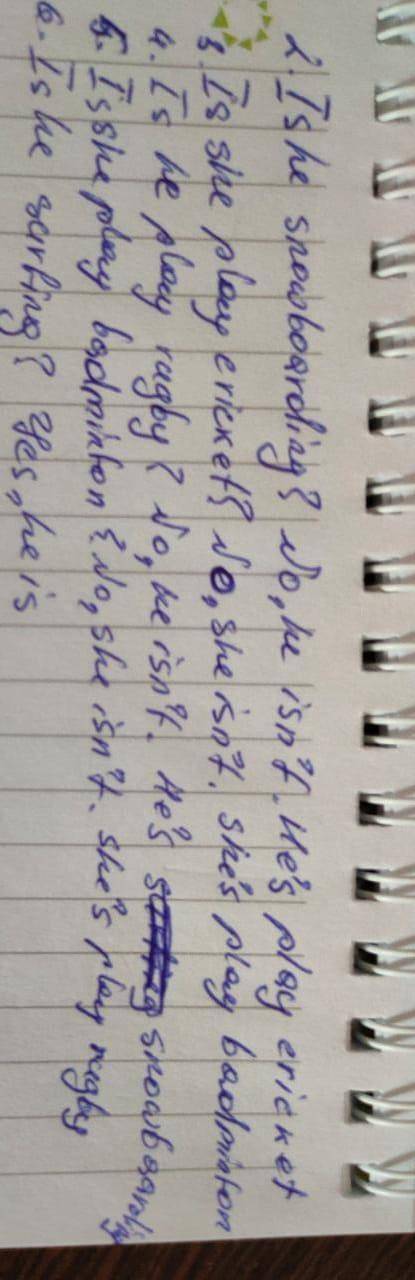 2. Is he snowboarding? No, he isn't. He's play cricket
3. Is she play cricket? No, she isn't. She's play badminton
4. Is he play rugby? No, he isn't. He's snowboarding
5. Is she play badminton? No, she isn't. She's play rugby
6. Is he surfing? Yes, he is